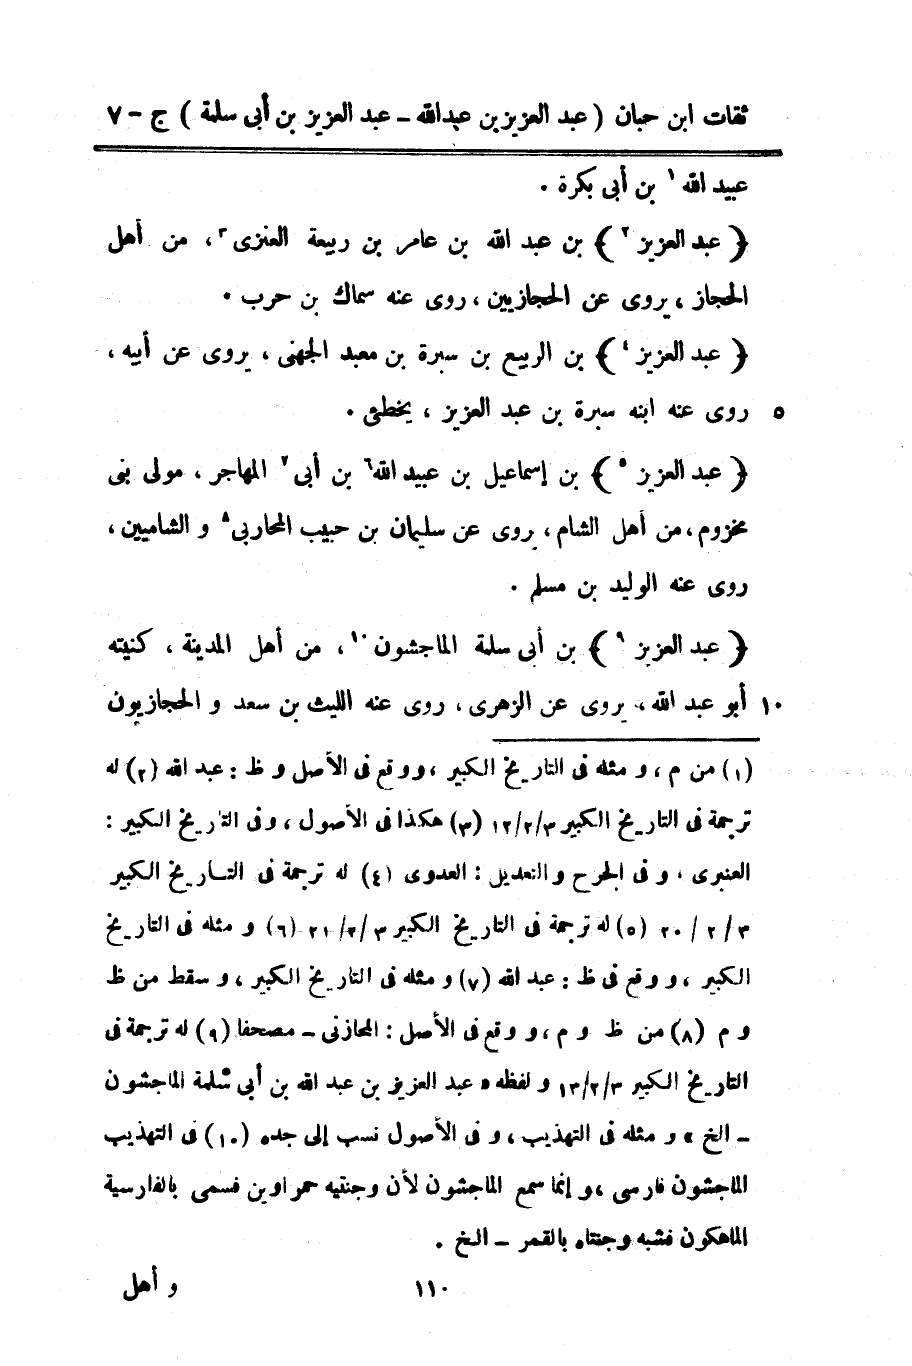 ثقات ابن حبان ( عبد العزيز بن عبدالله – عبد العزيز بن أبى سلمة ) ج – ٧
عبيد الله ١ بن أبى بكرة .
﴿ عبد العزيز ٢ ﴾ بن عبد الله بن عامر بن ربيعة العنزى ٣ ، من أهل
الحجاز ، يروى عن الحجازيين ، روى عنه سماك بن حرب .
﴿ عبد العزيز ٤ ﴾ بن الربيع بن سبرة بن معبد الجهنى ، يروى عن أبيه ،
٥ روى عنه ابنه سبرة بن عبد العزيز ، يخطئ .
﴿ عبد العزيز ٥ ﴾ بن إسماعيل بن عبيد الله ٦ بن أبى ٧ المهاجر ، مولى بنى
مخزوم ، من أهل الشام ، يروى عن سليمان بن حبيب المحاربى ٨ و الشاميين ،
روى عنه الوليد بن مسلم .
﴿ عبد العزيز ٩ ﴾ بن أبى سلمة الماجشون ١٠ ، من أهل المدينة ، كنيته
١٠ أبو عبد الله ، يروى عن الزهرى ، روى عنه الليث بن سعد و الحجازيون
(١) من م ، و مثله فى التاريخ الكبير ، ووقع فى الأصل و ظ : عبد الله (٢) له
ترجمة فى التاريخ الكبير ١٢/٢/٣ (٣) هكذا فى الأصول ، وفى التاريخ الكبير :
العنبرى ، و فى الجرح والتعديل : العدوى (٤) له ترجمة فى التاريخ الكبير
٢٠ / ٢ / ٣ (٥) له ترجمة فى التاريخ الكبير ٢١/٢/٣ (٦) و مثله فى التاريخ
الكبير ، و وقع فى ظ : عبد الله (٧) و مثله فى التاريخ الكبير ، و سقط من ظ
و م (٨) من ظ و م ، و وقع فى الأصل : المحازنى – مصحفا (٩) له ترجمة فى
التاريخ الكبير ١٣/٢/٣ و لفظه « عبد العزيز بن عبد الله بن أبى سلمة الماجشون
– الخ » و مثله فى التهذيب ، و فى الأصول نسب إلى جده (١٠) فى التهذيب
الماجشون فارسى ، و إنما سمع الماجشون لأن وجنتيه حمراوين فسمى بالفارسية
الماهكون فشبه وجنتاه بالقمر – الخ .
١١٠
و أهل